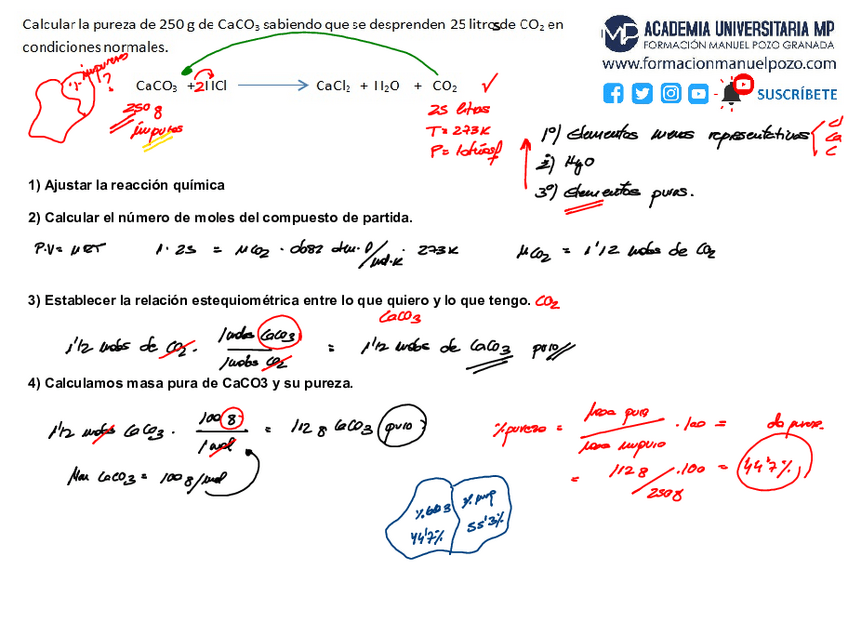 Calcular la pureza de 250 g de CaCO₃ sabiendo que se desprenden 25 litros de CO₂ en
condiciones normales.
ACADEMIA UNIVERSITARIA MP
FORMACIÓN MANUEL POZO GRANADA
www.formacionmanuelpozo.com
SUSCRÍBETE
impureza
?
CaCO₃ + 2HCl → CaCl₂ + H₂O + CO₂
250 g
impuros
25 litros
T = 273 K
P = 1 atmósf
1º) Elementos menos representativos
Cl
Ca
C
2) H₂O
3º) Elementos puros.
1) Ajustar la reacción química
2) Calcular el número de moles del compuesto de partida.
P·V = nRT 1 · 25 = nCO₂ · 0'082 atm·l/mol·K · 273K nCO₂ = 1'12 mols de CO₂
3) Establecer la relación estequiométrica entre lo que quiero y lo que tengo. CO₂
CaCO₃
1'12 mols de CO₂ · 1 mols CaCO₃ / 1 mols CO₂ = 1'12 mols de CaCO₃ puro
4) Calculamos masa pura de CaCO3 y su pureza.
1'12 mols CaCO₃ · 100 g / 1 mol = 112 g CaCO₃ puro
Mm CaCO₃ = 100 g/mol
% pureza = masa pura / masa impuro · 100 =
= 112 g / 250 g · 100 = 44'7%
% CaCO3
44'7%
% imp
55'3%